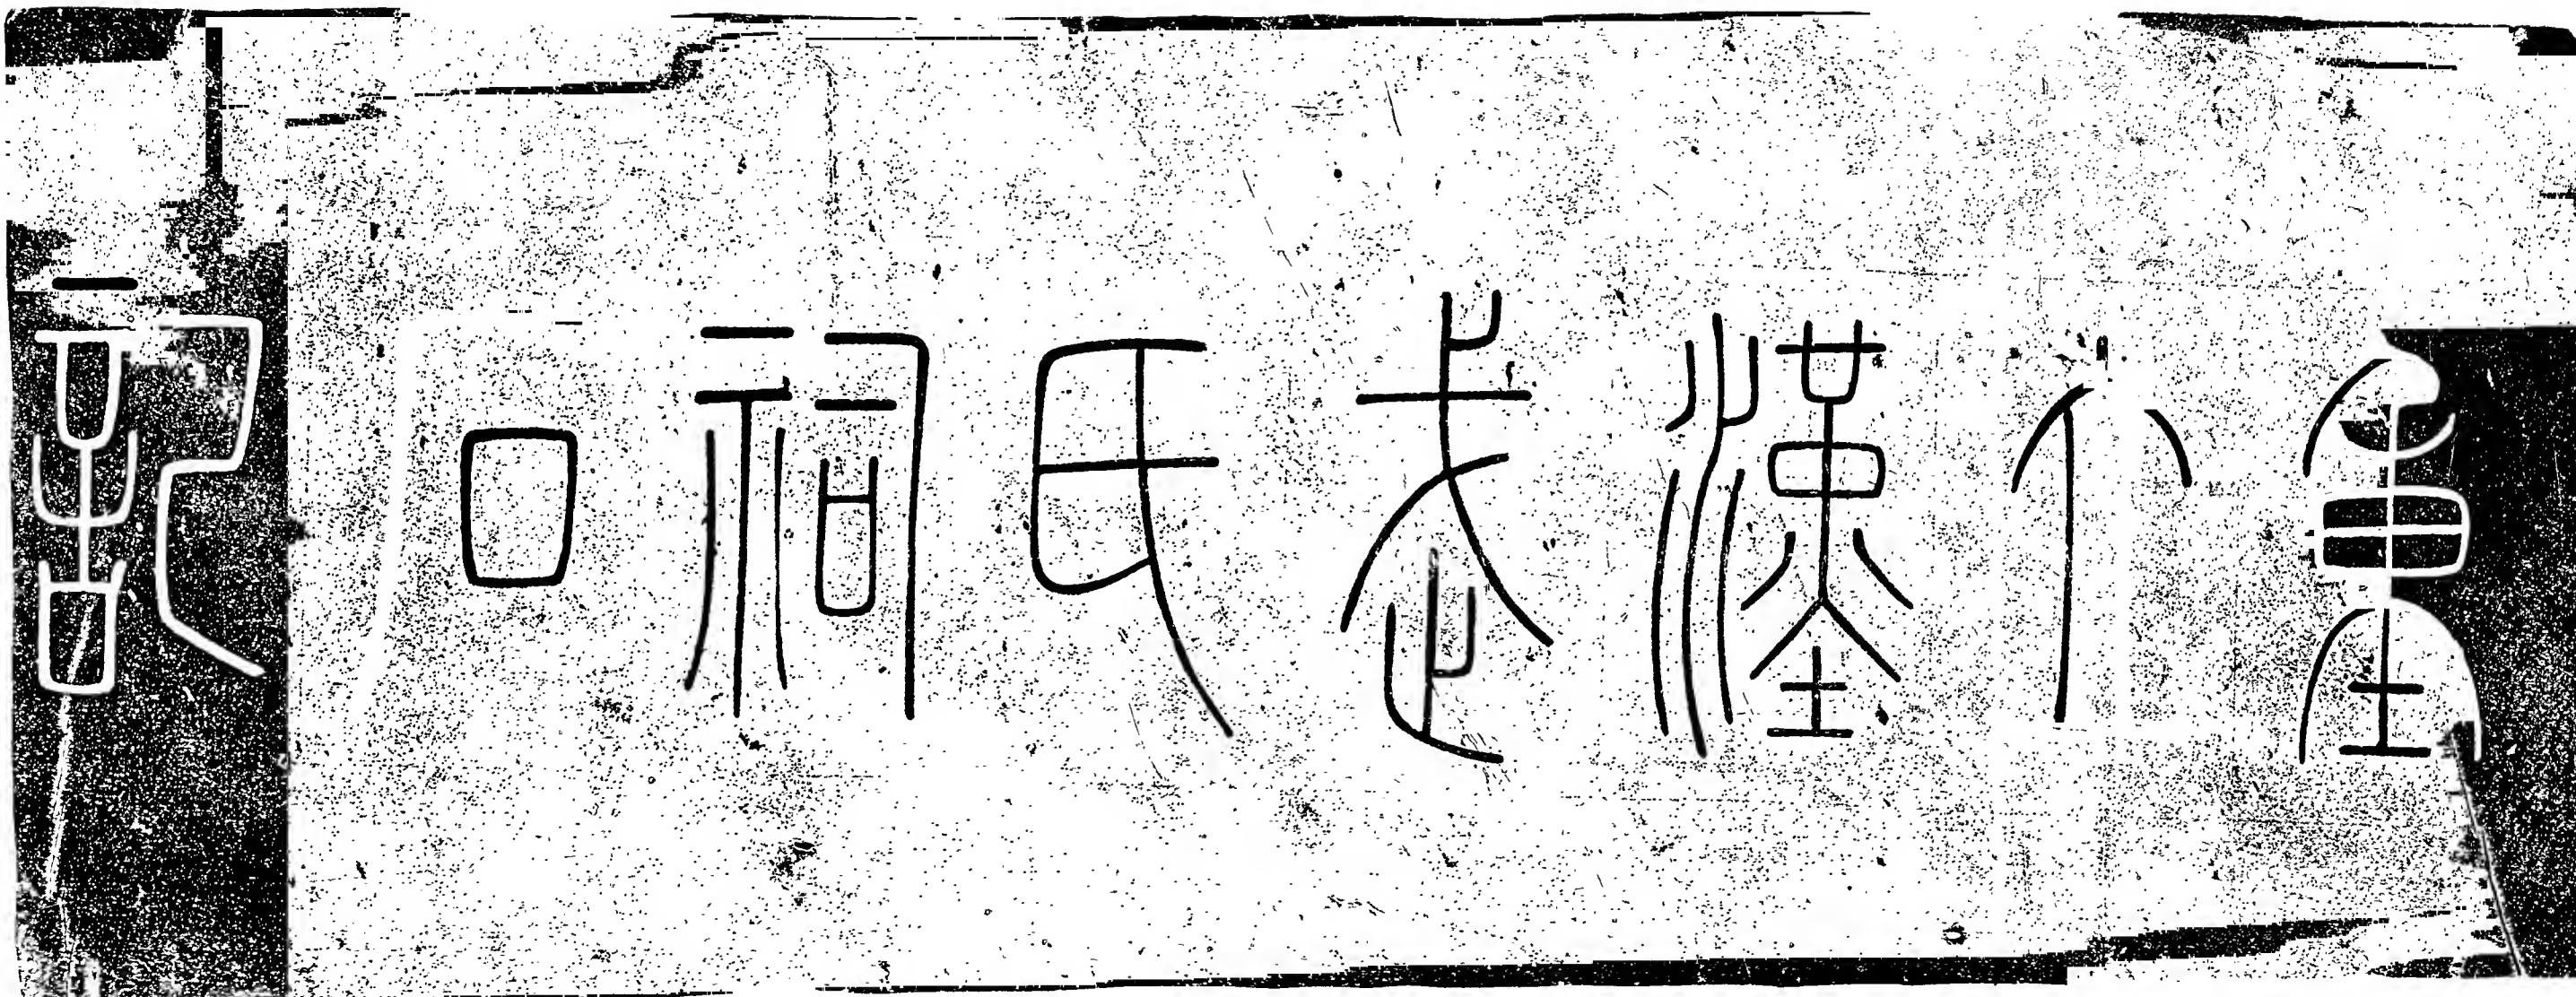 重修漢武氏祠石記